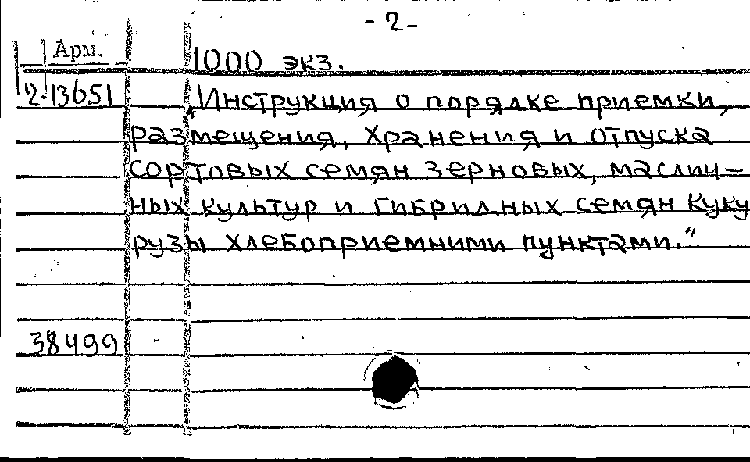 - 2 -
Арм.
1000 экз.
2-13651
"Инструкция о порядке приемки,
размещения, хранения и отпуска
сортовых семян зерновых, маслич-
ных культур и гибридных семян куку
рузы хлебоприемними пунктами."
38499